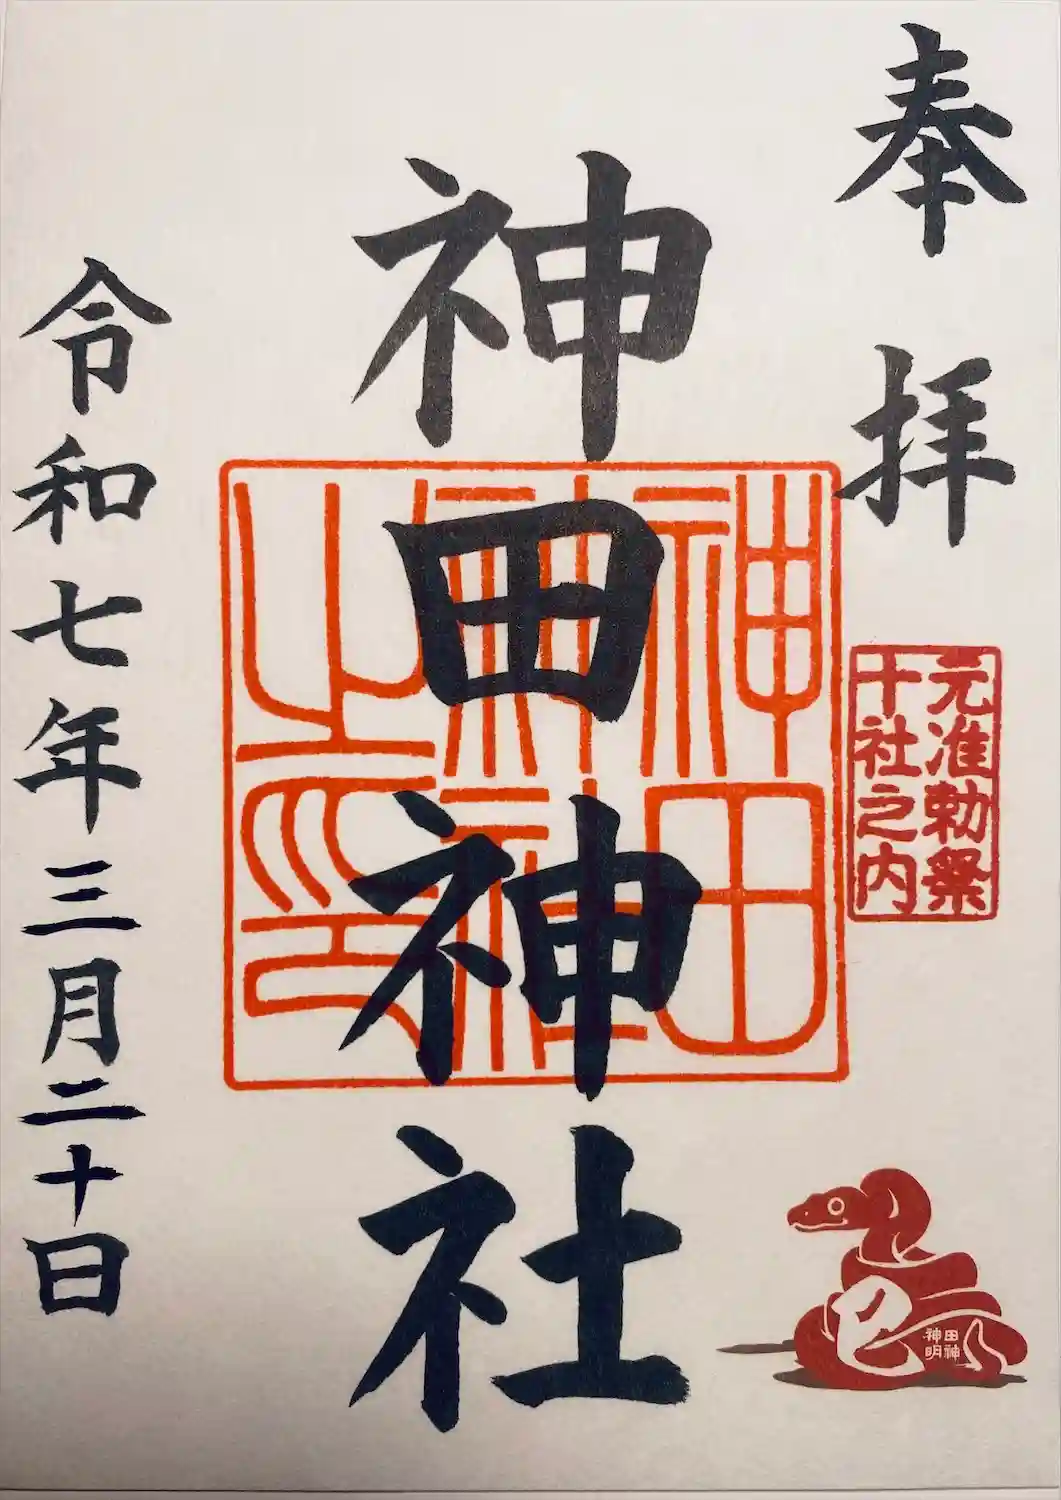 奉拝
元准勅祭
十社之内
神田神社
神田
神社
之印
令和七年三月二十日
巳
神田神明